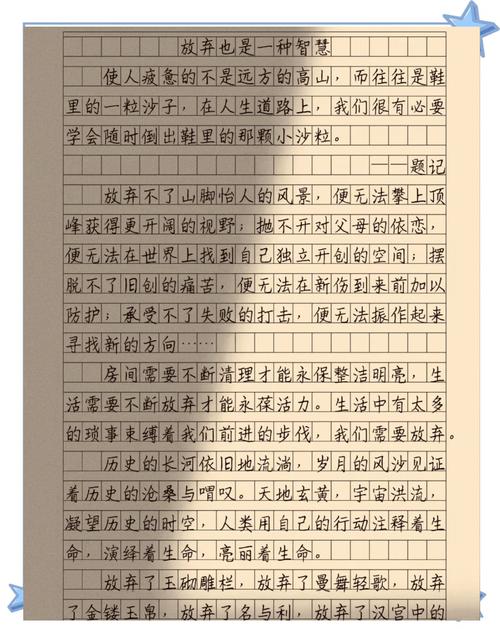 放弃也是一种智慧
使人疲惫的不是远方的高山，而往往是鞋
里的一粒沙子，在人生道路上，我们很有必要
学会随时倒出鞋里的那颗小沙粒。
——题记
放弃不了山脚怡人的风景，便无法攀上顶
峰获得更开阔的视野；抛不开对父母的依恋，
便无法在世界上找到自己独立开创的空间；摆
脱不了旧创的痛苦，便无法在新伤到来前加以
防护；承受不了失败的打击，便无法振作起来
寻找新的方向……
房间需要不断清理才能永保整洁明亮，生
活需要不断放弃才能永葆活力。生活中有太多
的琐事束缚着我们前进的步伐，我们需要放弃。
历史的长河依旧地流淌，岁月的风沙见证
着历史的沧桑与喟叹。天地玄黄，宇宙洪流，
凝望历史的时空，人类用自己的行动注释着生
命，演绎着生命，亮丽着生命。
放弃了玉砌雕栏，放弃了曼舞轻歌，放弃
了金镂玉帛，放弃了名与利，放弃了汉宫中的